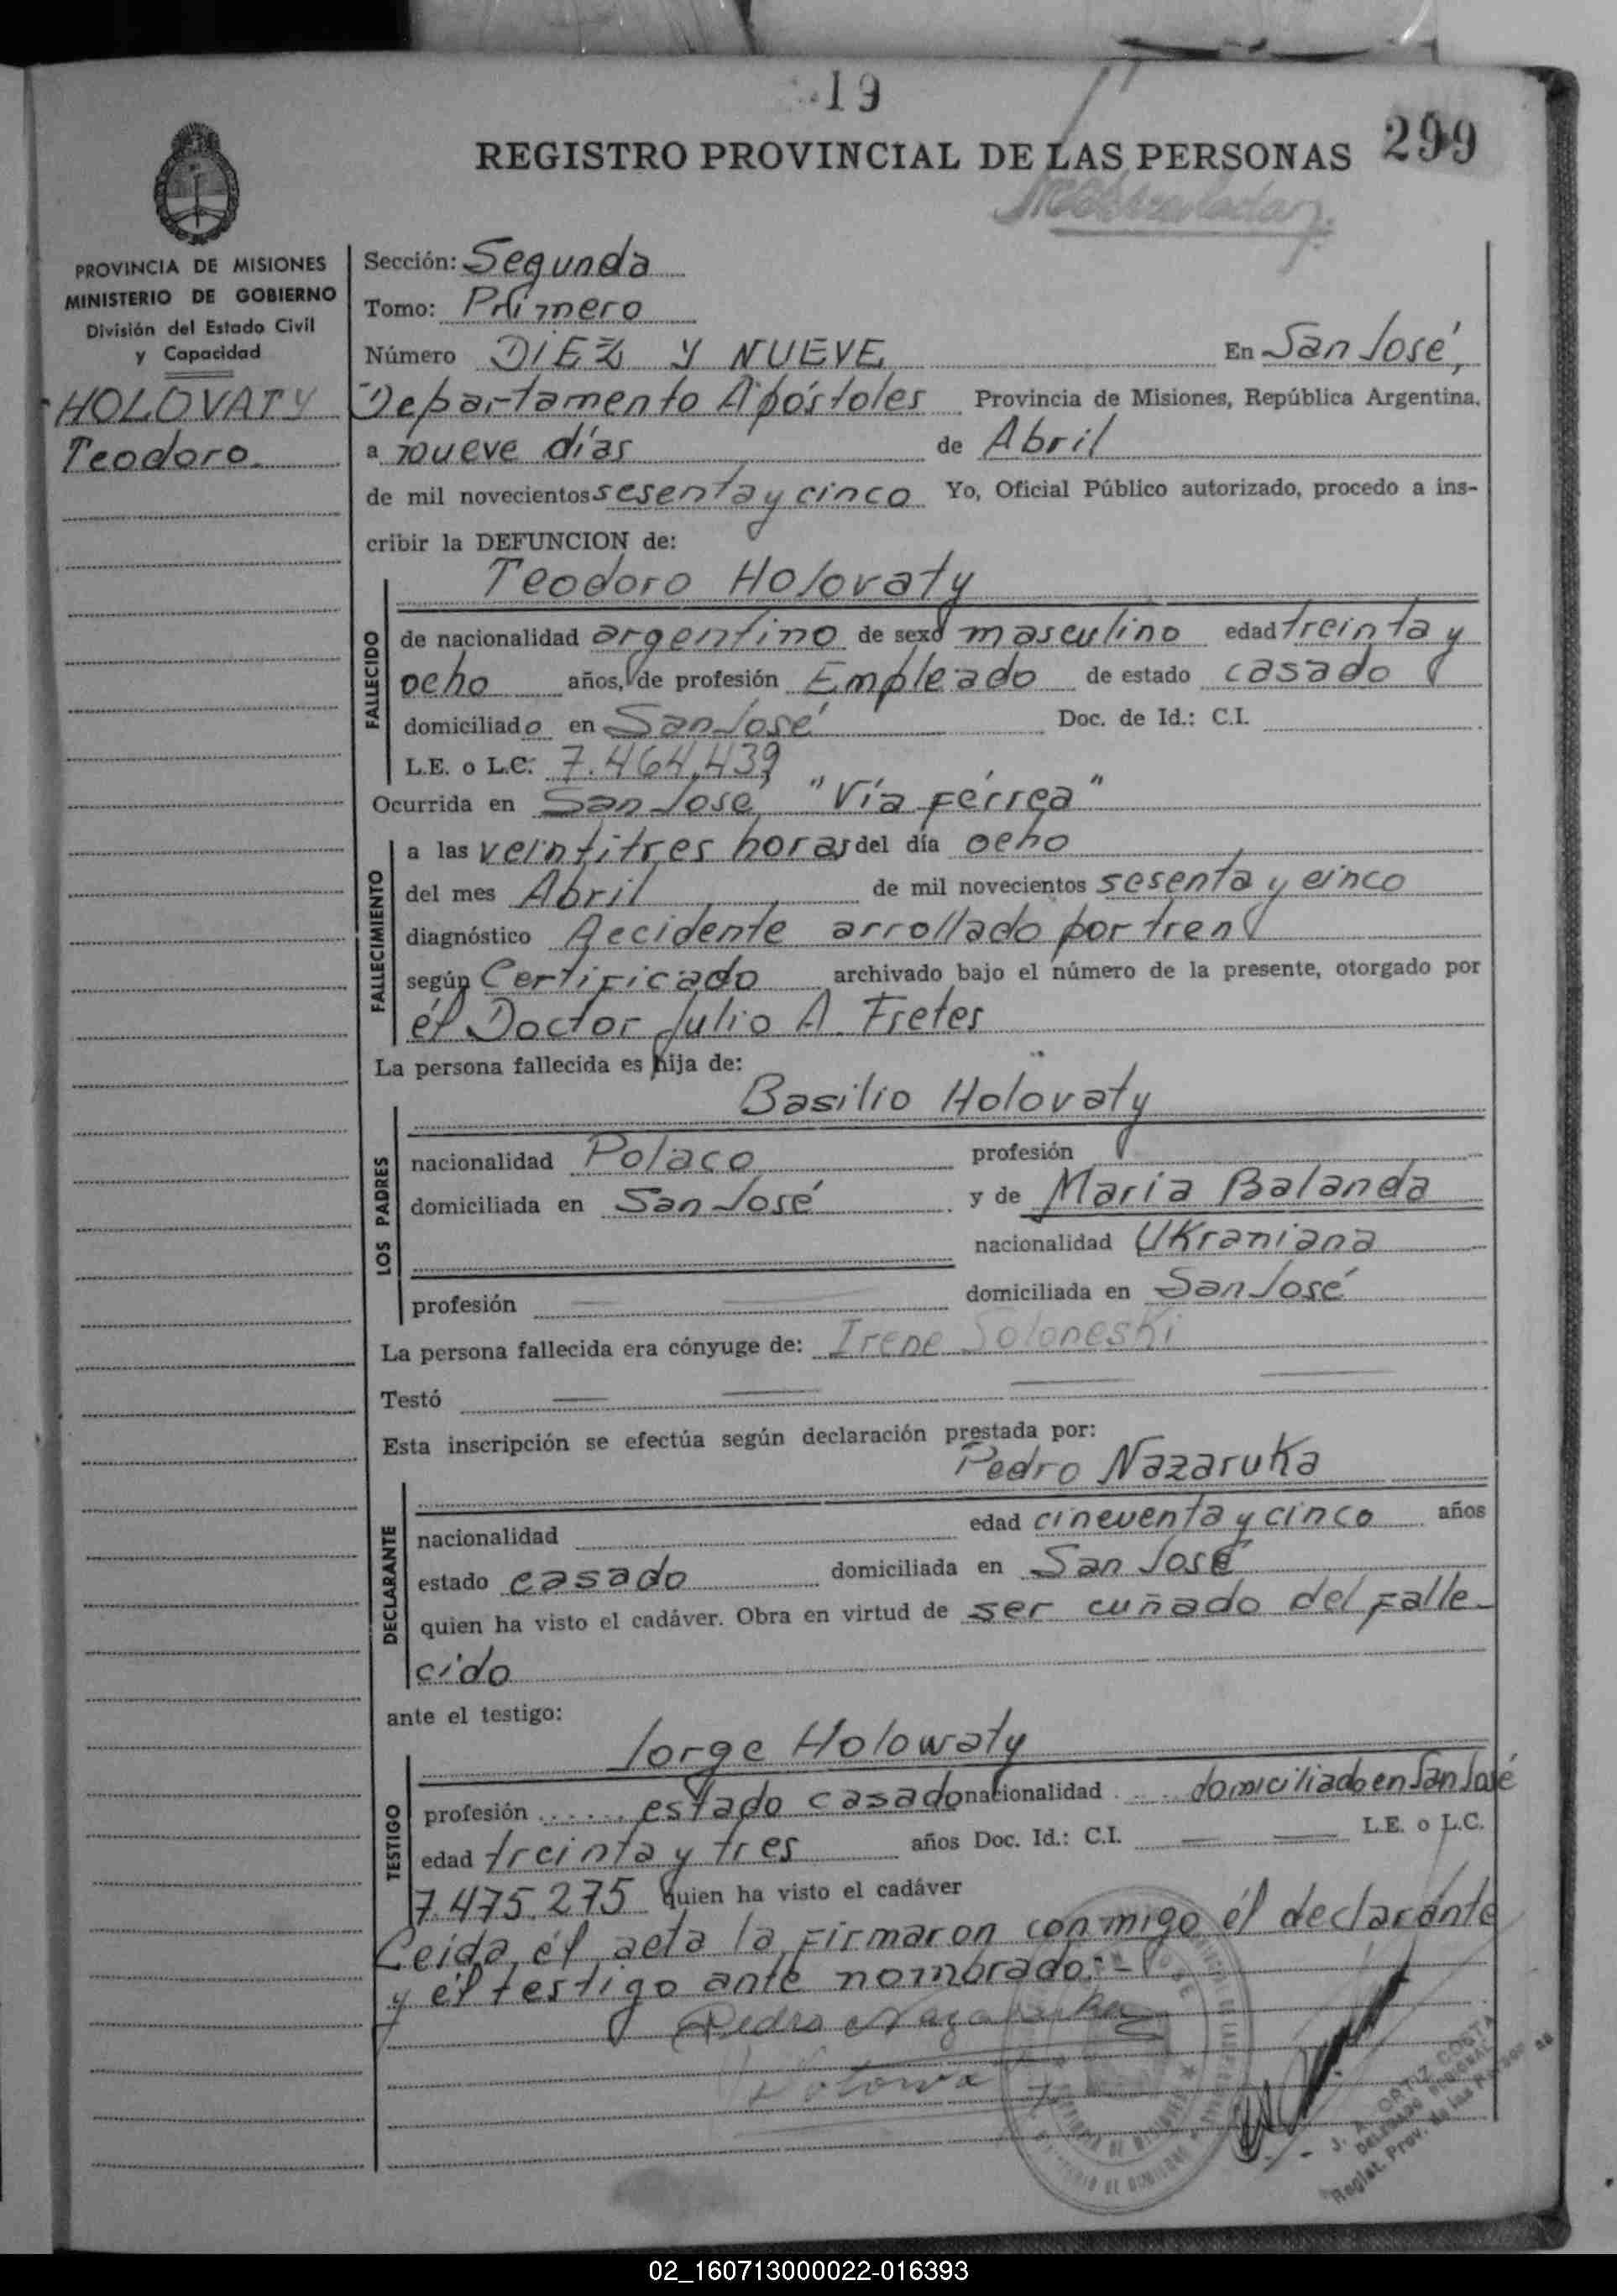 19
REGISTRO PROVINCIAL DE LAS PERSONAS 299
PROVINCIA DE MISIONES
MINISTERIO DE GOBIERNO
División del Estado Civil
y Capacidad
HOLOVATY
Teodoro
Sección: Segunda
Tomo: Primero
Número DIEZ Y NUEVE En San José,
Departamento Apóstoles Provincia de Misiones, República Argentina,
a nueve días de Abril
de mil novecientos sesenta y cinco Yo, Oficial Público autorizado, procedo a ins-
cribir la DEFUNCION de:
Teodoro Holovaty
FALLECIDO
de nacionalidad argentino de sexo masculino edad treinta y
ocho años, de profesión Empleado de estado casado
domiciliado en San José Doc. de Id.: C.I.
L.E. o L.C. 7.464.439
Ocurrida en San José "Vía férrea"
FALLECIMIENTO
a las veintitres horas del día ocho
del mes Abril de mil novecientos sesenta y cinco
diagnóstico Accidente arrollado por tren
según Certificado archivado bajo el número de la presente, otorgado por
él Doctor Julio A. Fretes
La persona fallecida es hija de:
Basilio Holovaty
LOS PADRES
nacionalidad Polaco profesión
domiciliada en San José y de María Balanda
nacionalidad Ukraniana
profesión domiciliada en San José
La persona fallecida era cónyuge de: Irene Soloneski
Testó
Esta inscripción se efectúa según declaración prestada por:
Pedro Nazaruka
DECLARANTE
nacionalidad edad cincuenta y cinco años
estado casado domiciliada en San José
quien ha visto el cadáver. Obra en virtud de ser cuñado del falle-
cido
ante el testigo:
Jorge Holowaty
TESTIGO
profesión ...... estado casado nacionalidad .... domiciliado en San José
edad treinta y tres años Doc. Id.: C.I. L.E. o L.C.
7.475.275 quien ha visto el cadáver
Leida él acta la firmaron conmigo él declarante
y él testigo ante nombrado.-
Pedro Nazaruka
J. A. ORTIZ COSTA
DELEGADO REGIONAL
Regist. Prov. de las Personas
02_160713000022-016393